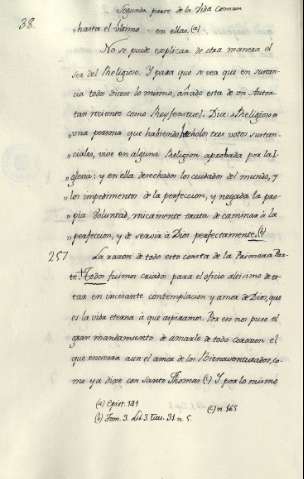 38.
Segunda parte de la Vida Comun
"hasta el ultimo en ellas.(a)
No se puede explicar de otra manera el
ser del Religioso. Y para que se vea que en sustan
cia todos dicen lo mismo, añado esta de un Autor
tan reciente como Reyfenstuel. Dice: Religioso es
"una persona que habiendo hechos los tres votos sustan
"ciales, vive en alguna Religion aprobada por la I
"glesia: y en ella desechados los cuidados del mundo, y
"los impedimentos de la perfeccion, y negada la pro
"pia Voluntad, unicamente trata de caminar à la
"perfeccion, y de servir à Dios perfectamente.(b)
257 La razon de todo esto consta de la Primera Par
te. Todos fuimos criados para el oficio altisimo de es
tar en incesante contemplacion y amor de Dios, que
es la vida eterna à que aspiramos. Por eso nos puso el
gran mandamiento de amarle de todo corazon el
que encierra aun el amor de los Bienaventurados, co
mo ya dixe con Santo Thomas (c) Y por lo mismo
(a) Epist. 131
(b) Tom. 3. Lib. 3. Titu. 31. n. 5.
(c) n. 165